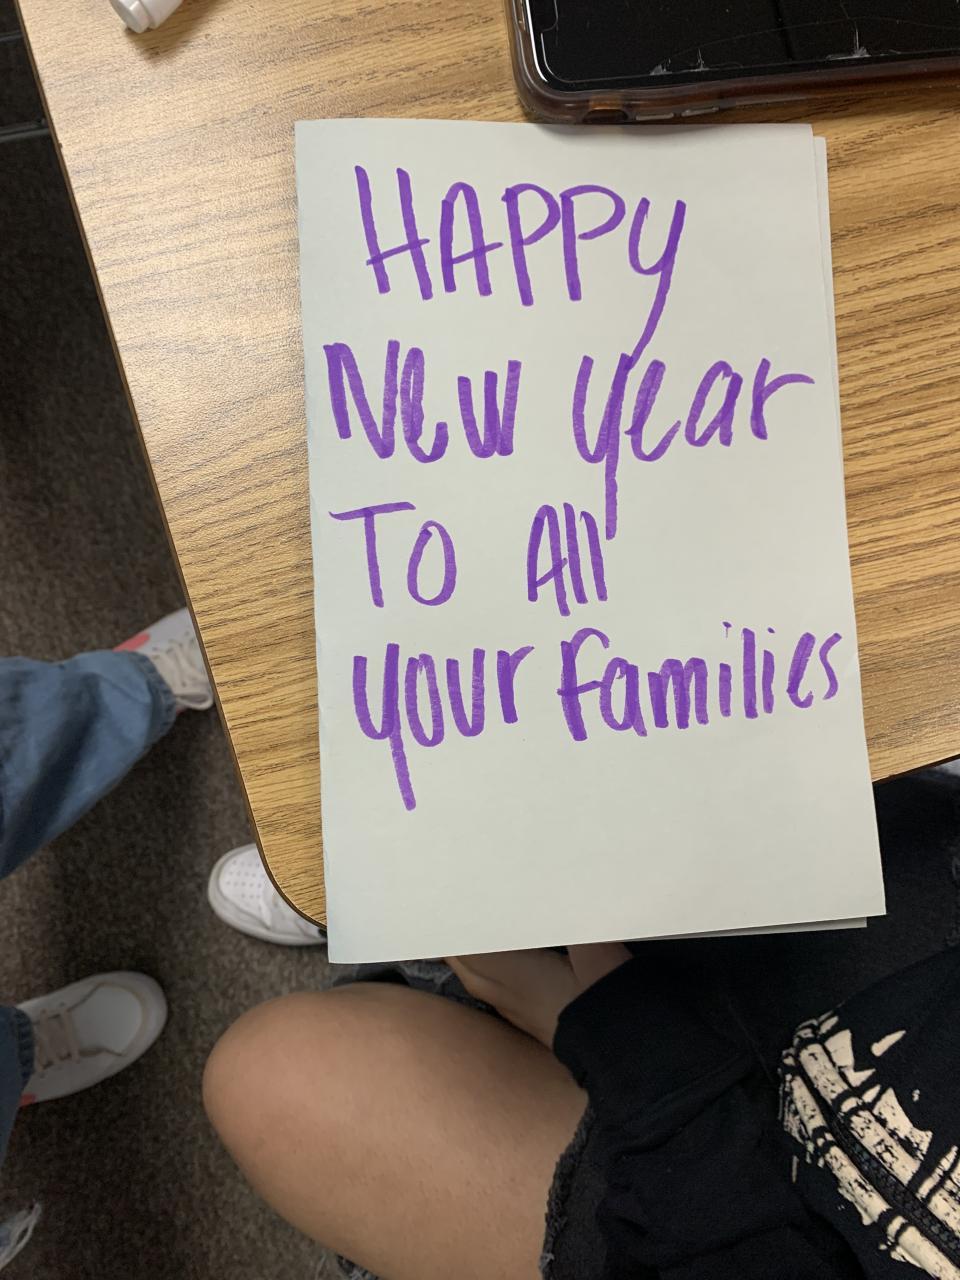 HAPPy
New year
To All
your families